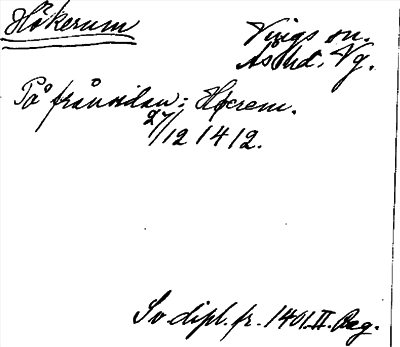 Hökerum
Vings sn.
Ås hd. Vg.
På frånsidan: Høcrem.
27/12 1412.
Sv dipl. fr. 1401. II. Reg.